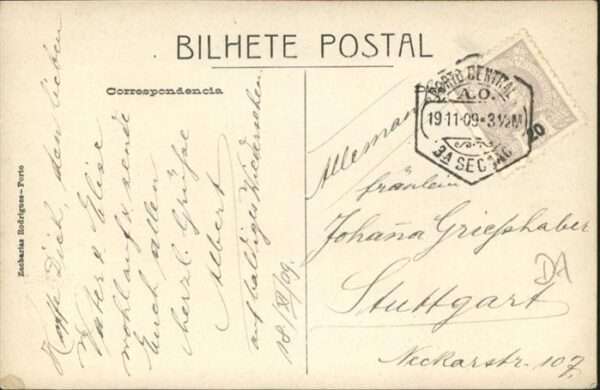 BILHETE POSTAL
Correspondencia
Zacharias Rodrigues-Porto
Hoffe Dich, den lieben
Vater & Elise
wohlauf & sende
Euch allen
herzl. Grüsse
Albert
auf baldiges Wiedersehen
18/XI/09.
PORTO CENTRAL
A.O.
19 11-09•3½M
3A SEC
20
Allemanha
Fräulein
Johaña Grieshaber
Stuttgart
Neckarstr. 107.
DA